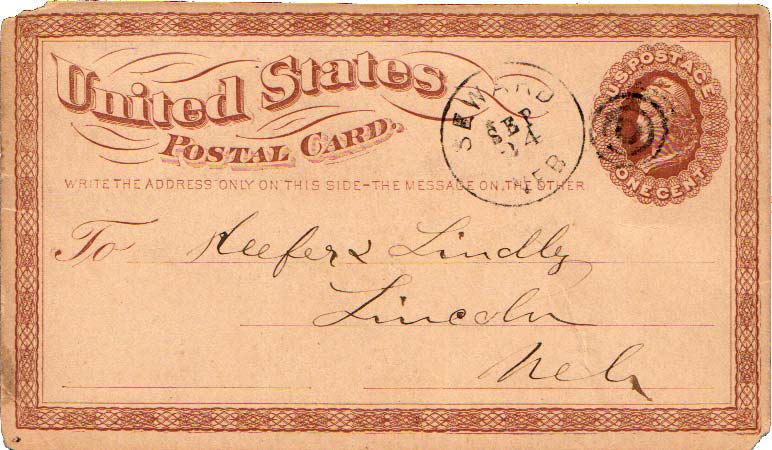 United States
POSTAL CARD.
U.S. POSTAGE
ONE CENT
SEWARD
SEP
24
NEB
WRITE THE ADDRESS ONLY ON THIS SIDE-THE MESSAGE ON THE OTHER
To Keefer & Lindly
Lincoln
Neb